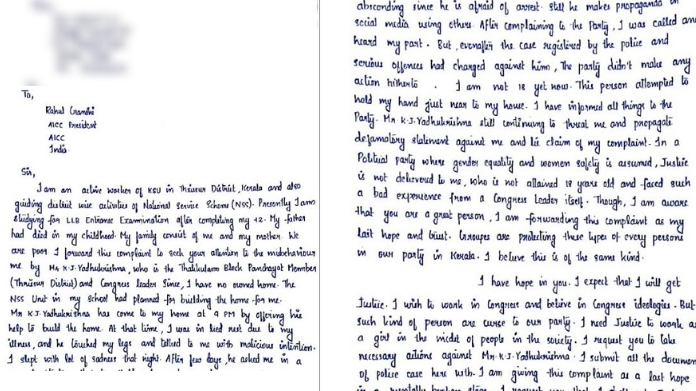 To,
Rahul Gandhi
AICC President
AICC
India.
Sir,
I am an active worker of KSU in Thrissur District, Kerala and also
guiding district wise activities of National Service Scheme (NSS). Presently I am
studying for LLB Entrance Examination after completing my +2. My father
had died in my childhood. My family consist of me and my mother. We
are poor. I forward this complaint to seek your attention to the misbehaviour
me by Mr K.J. Yadhukrishna, who is the Thalikulam Block Panchayat Member
(Thrissur District) and Congress Leader. Since, I have no owned home. The
NSS Unit in my school had planned for building the home for me.
Mr K.J. Yadhukrishna has come to my home at 9 PM by offering his
help to build the home. At that time, I was in bed rest due to my
illness, and he touched my legs and talked to me with malicious intention.
I slept with lot of sadness that night. After few days, he asked me in a
absconding since he is afraid of arrest. Still he makes propaganda in
social media using others. After complaining to the Party, I was called and
heard my part. But, even after the case registered by the police and
serious offences had charged against him, The party didn't make any
action hitherto. I am not 18 yet now. This person attempted to
hold my hand just near to my house. I have informed all things to the
Party. Mr K.J. Yadhukrishna still continuing to threat me and propagate
defamatory statement against me and lie claim of my complaint. In a
Political party where gender equality and women safety is assured, Justice
is not delivered to me, who is not attained 18 years old and faced such
a bad experience from a Congress Leader itself. Though, I am aware
that you are a great person, I am forwarding this complaint as my
last hope and trust. Groups are protecting these types of every persons
in our party in Kerala. I believe this is of the same kind.
I have hope in you. I expect that I will get
Justice. I wish to work in Congress and believe in Congress ideologies. But
such kind of person are curse to our party. I need Justice to work as
a girl in the midst of people in the society. I request you to take
necessary actions against Mr. K.J. Yadhukrishna. I submit all the document
of police case here with. I am giving this complaint as a last hope